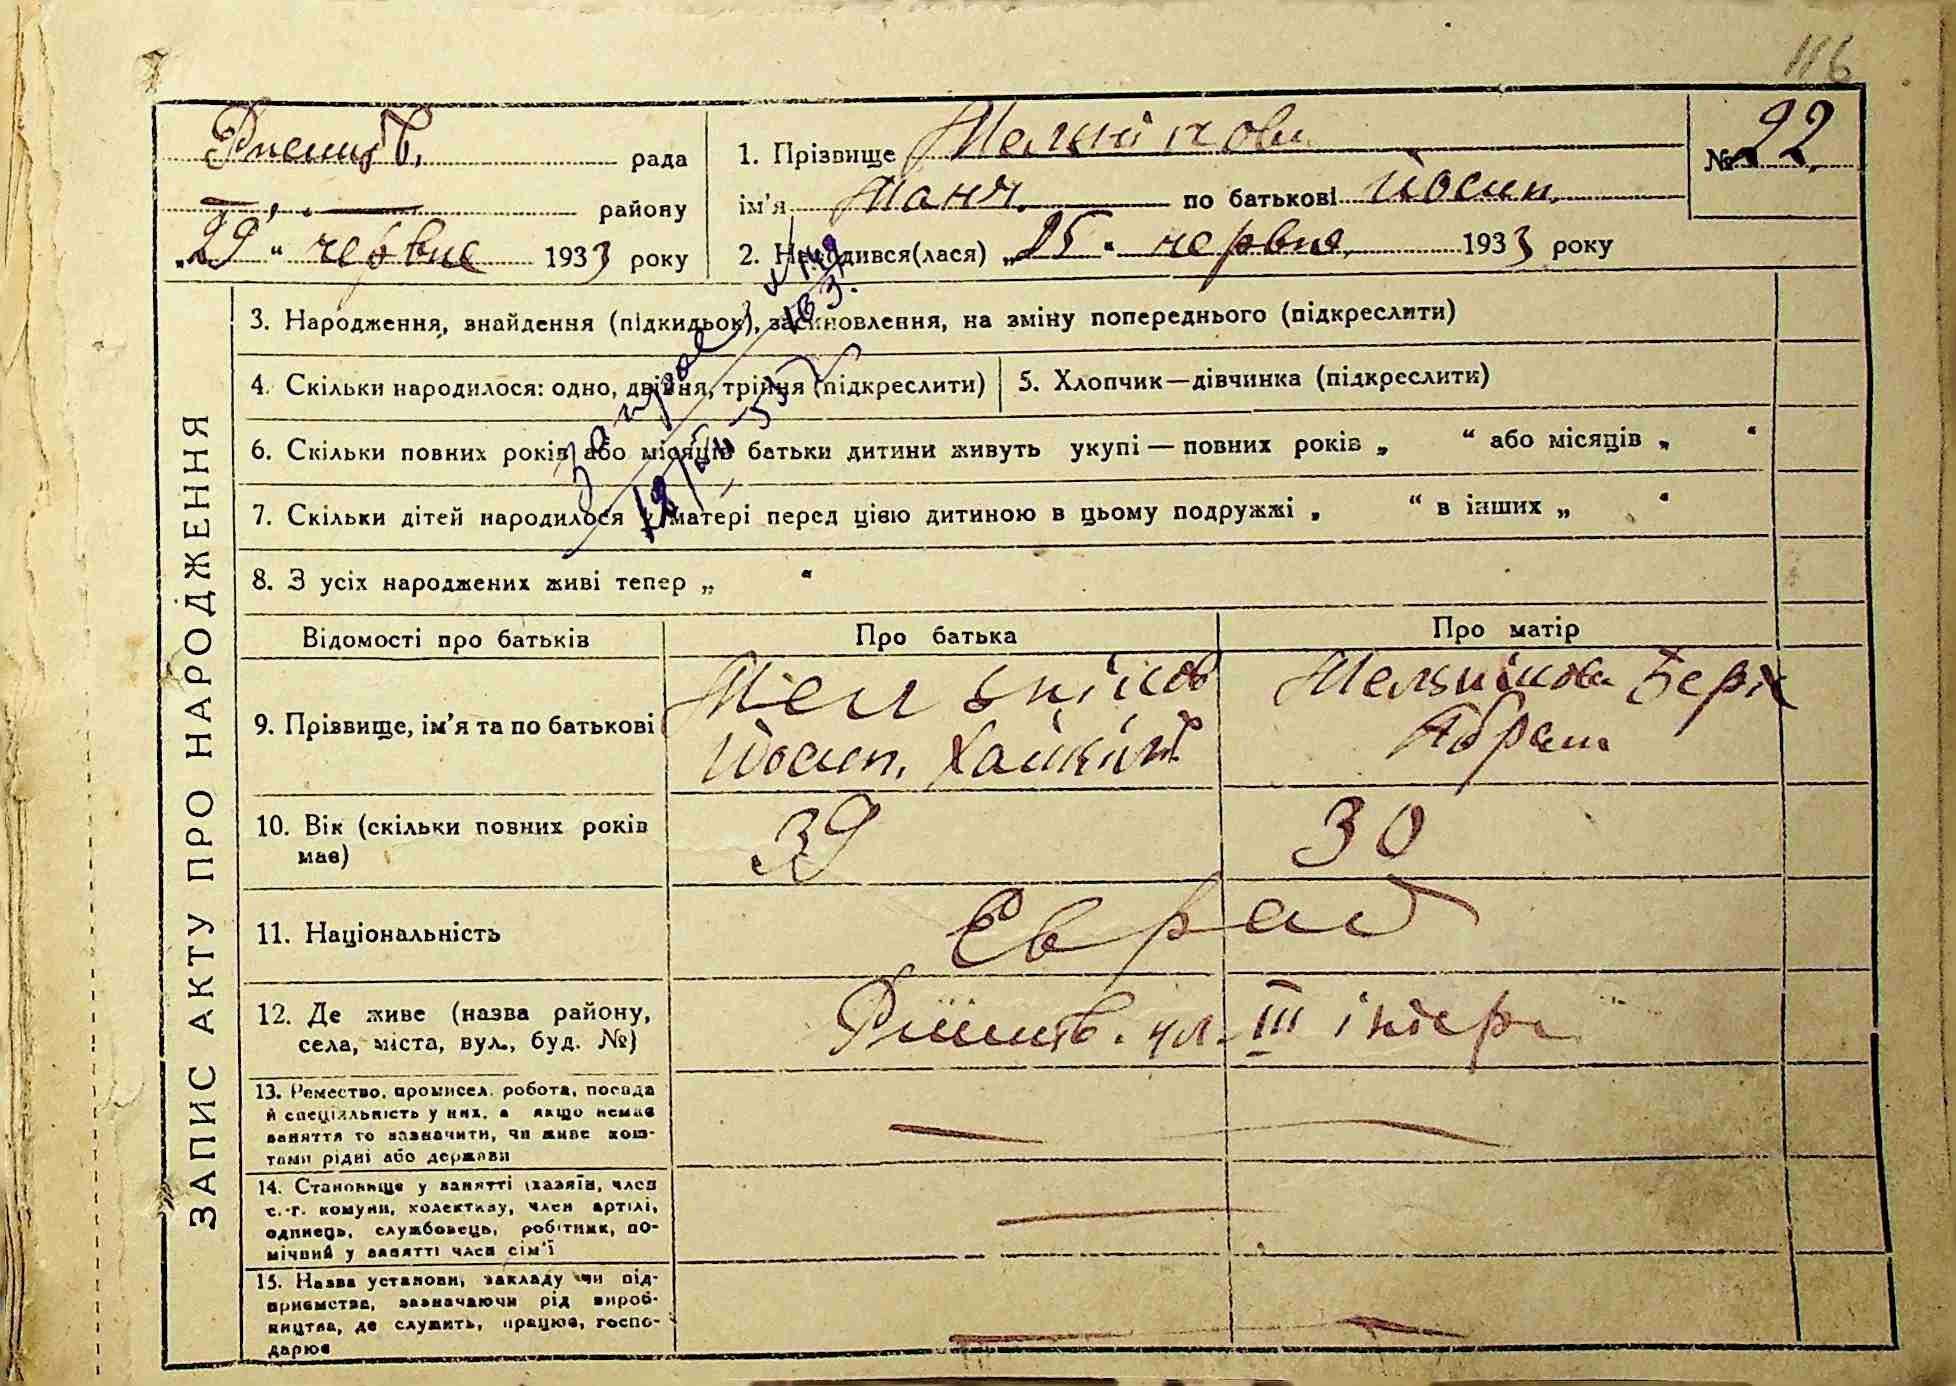 116
рада
1. Прізвище Мельнікова
№ 22
району
ім'я Маня по батькові Йосип.
„29“ червне 1933 року
2. Народився(лася) „25“ червня 1933 року
ЗАПИС АКТУ ПРО НАРОДЖЕННЯ
3. Народження, знайдення (підкидьок), засиновлення, на зміну попереднього (підкреслити)
4. Скільки народилося: одно, двійня, трійня (підкреслити)
5. Хлопчик—дівчинка (підкреслити)
6. Скільки повних років або місяців батьки дитини живуть укупі — повних років „ “ або місяців „ “
7. Скільки дітей народилося у матері перед цією дитиною в цьому подружжі „ “ в інших „ “
8. З усіх народжених живі тепер „ “
Відомості про батьків
Про батька
Про матір
9. Прізвище, ім'я та по батькові
Мельніков
Йосип.
Мельнікова
Абрам
10. Вік (скільки повних років має)
39
30
11. Національність
Єврей
12. Де живе (назва району,
села, міста, вул., буд. №)
ул. III інтерн
13. Ремество, промисел, робота, посада
й спеціяльність у них, а якщо немає
заняття то зазначити, чи живе кош-
тами рідні або держави
14. Становище у занятті (хазяїн, член
с.-г. комуни, колективу, член артілі,
одинець, службовець, робітник, по-
мічний у занятті член сім'ї
15. Назва установи, закладу чи під-
приємства, зазначаючи рід вироб-
ництва, де служить, працює, госпо-
дарює